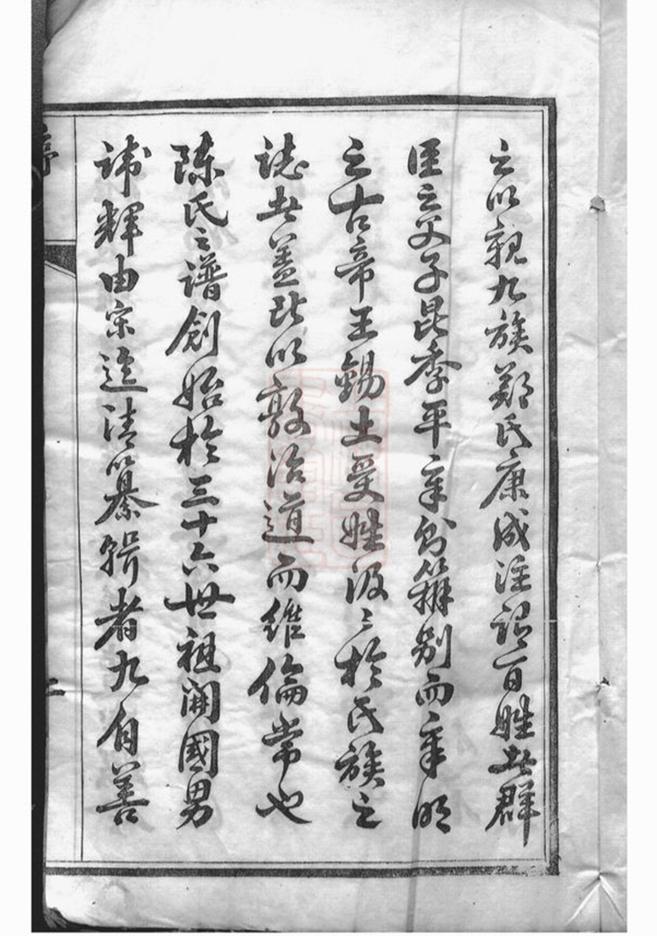 之以親九族鄭氏康成注謂百姓者群
臣之父子昆季平章辨别而章明
之古帝王錫土受姓汲汲於氏族之
誌者蓋所以敦治道而維倫常也
陳氏之譜創始於三十六世祖開國男
諱輝由宋迄清纂輯者九自善
序
二